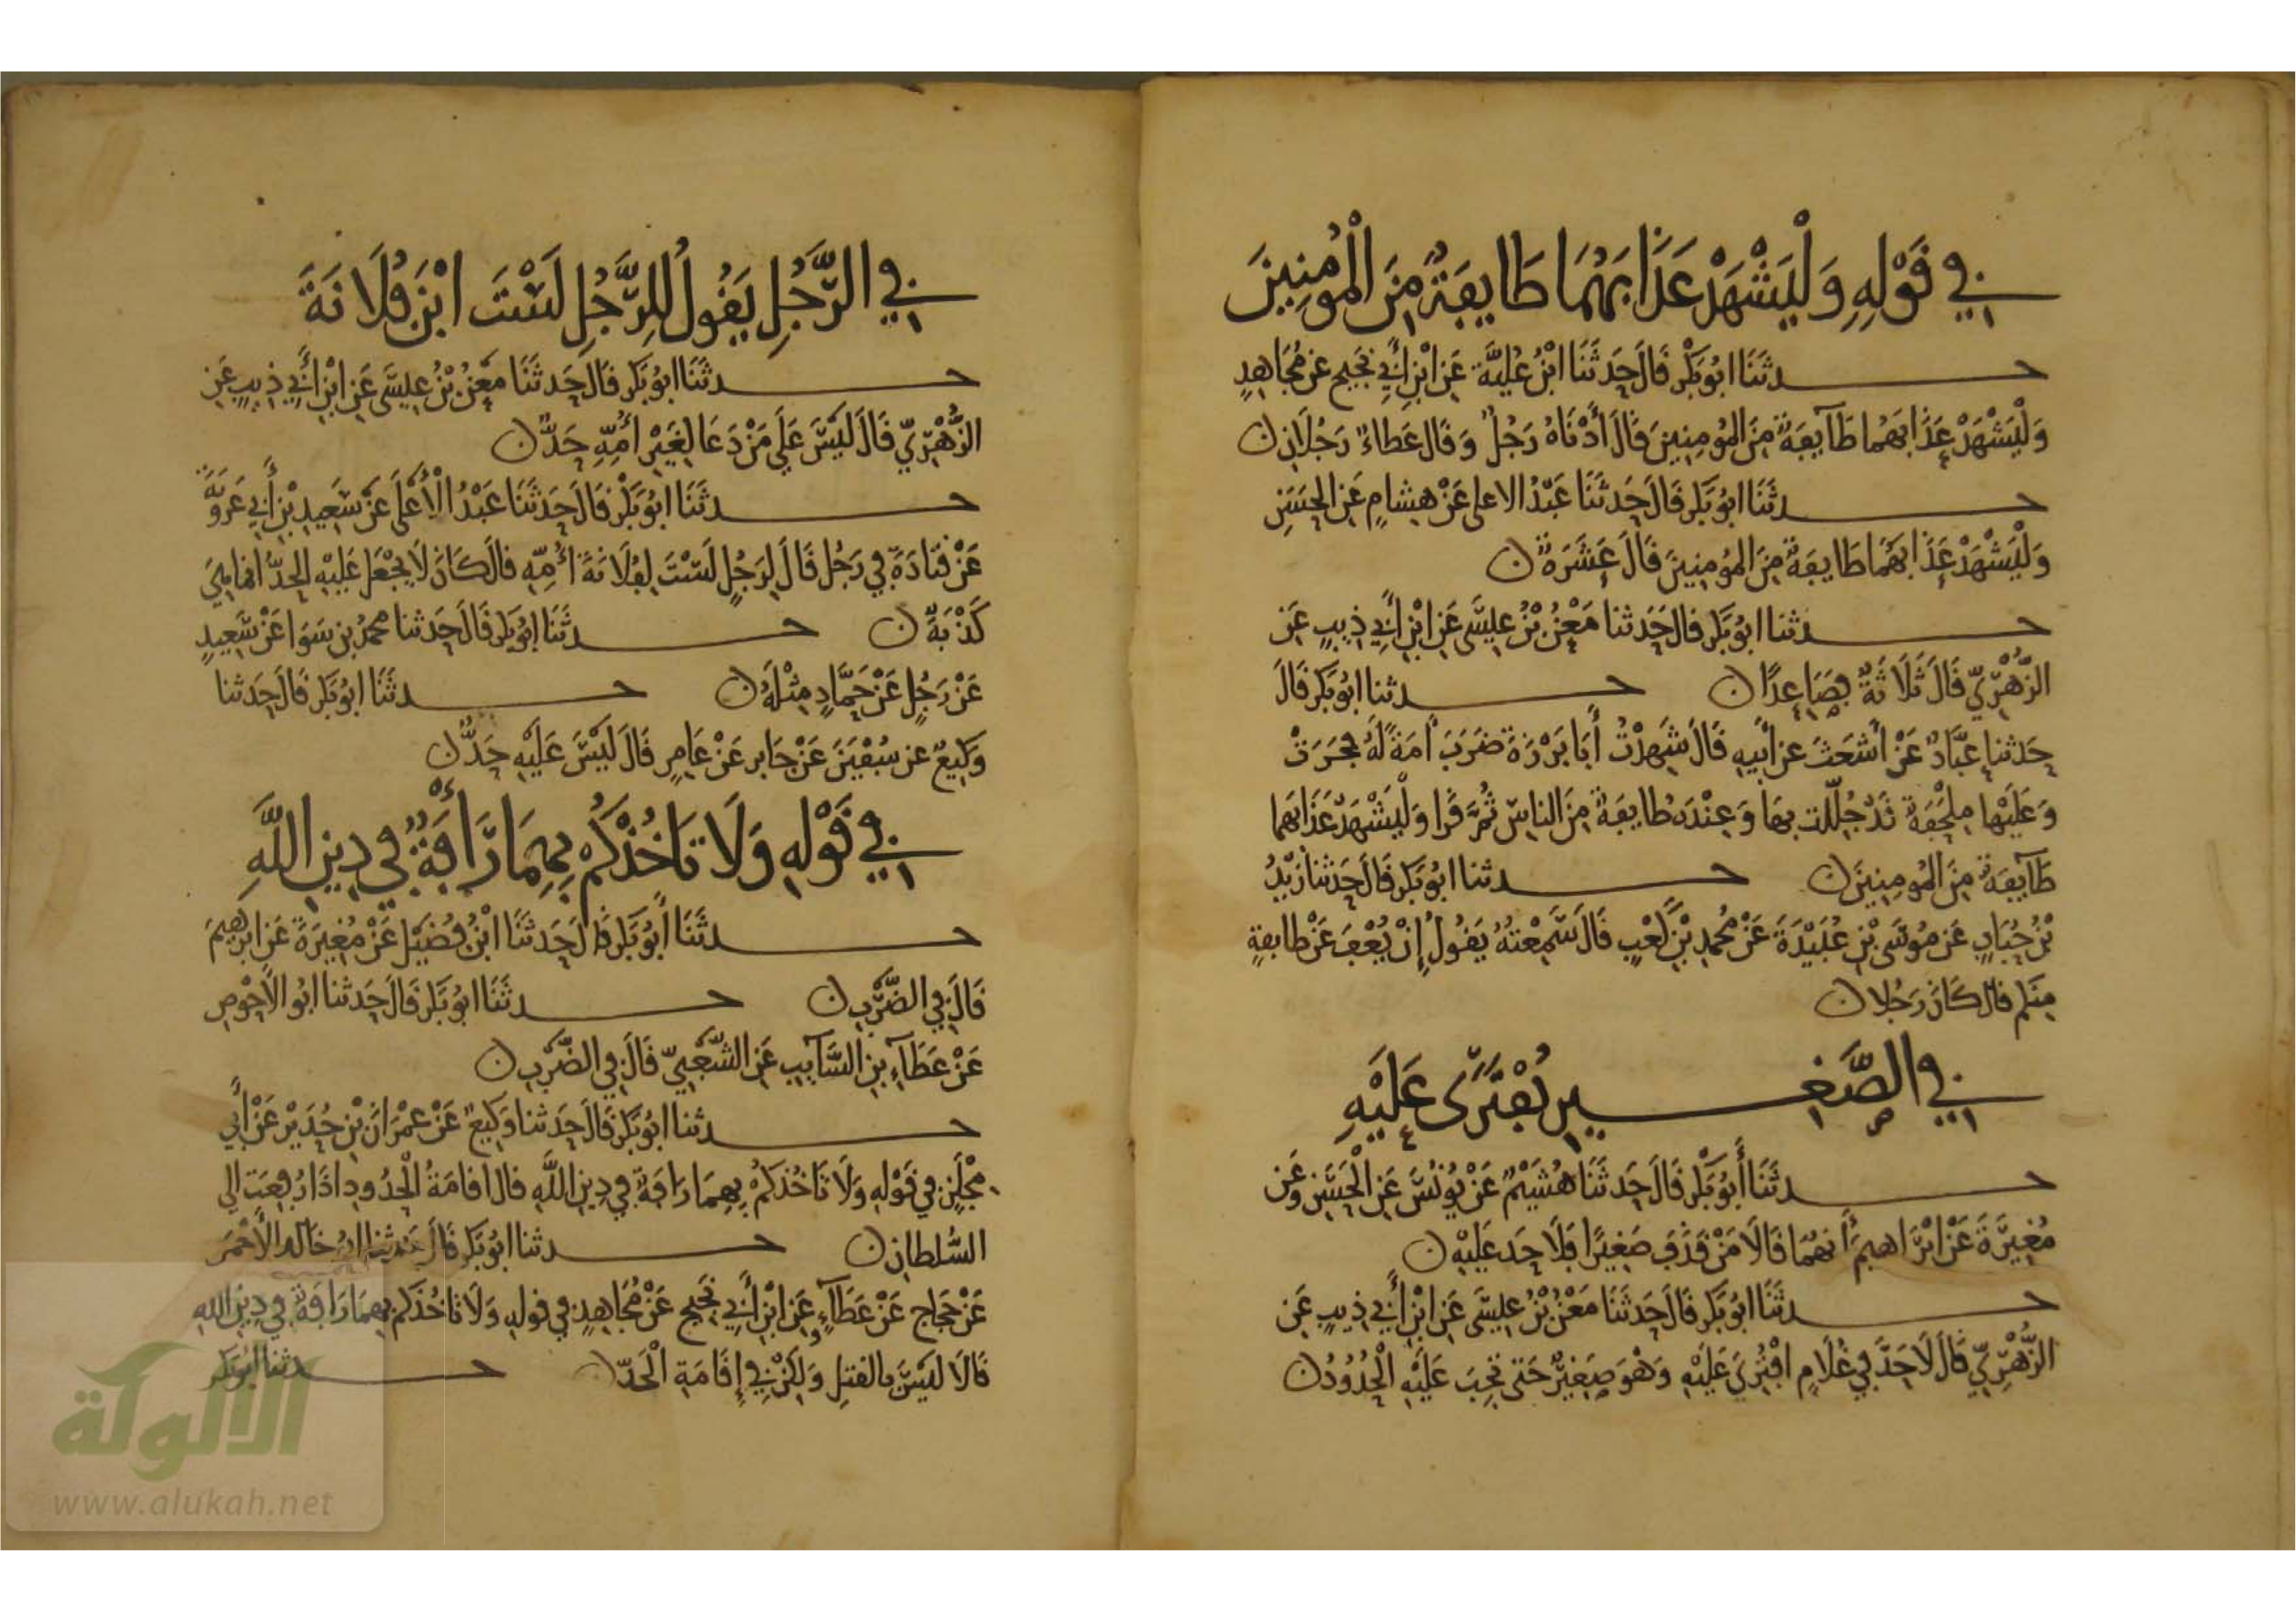 في قَوْلِهِ وَلْيَشْهَدْ عَذَابَهُمَا طَايِفَةٌ مِنَ الْمُومِنِينَ
حدثَنَا ابُو بَكْرٍ قَالَ حَدثَنَا ابْنُ عُلَيَّةَ عَنِ ابْنِ أَبِي نَجِيح عن مُجَاهِدٍ
وَلْيَشْهَدْ عَذَابَهُمَا طَآيِفَةٌ مِنَ المُومِنِينَ قَالَ أَدْنَاهُ رَجُلٌ وَقَالَ عَطاءٌ رَجُلَانِ
حدثَنَا ابُو بَكْرٍ قَالَ حَدثَنَا عَبْدُ الاعلى عَنْ هِشامٍ عَنِ الحَسَنِ
وَلْيَشْهَدْ عَذَابَهُمَا طَايِفَةٌ مِنَ المُومِنِينَ قَالَ عَشَرَةٌ
حدثنا ابُو بَكْرٍ قالَ حَدثنا مَعْنُ بْنُ عِيسَى عَنِ ابْنِ أَبِي ذِيبٍ عَنِ
الزُّهْرِيِّ قَالَ ثَلَاثَةٌ فصَاعِدًا حدثنا ابُو بَكْرٍ قَالَ
حَدثنا عَبَّادٌ عَنْ أشعَثَ عن ابِيهِ قَالَ شَهِدْتُ أَبَا بَرْزَةَ ضَرَبَ امَةً لَهُ فَجَرَتْ
وَعَلَيْهَا مِلْحَفَةٌ قَدْ جُلِّلت بِهَا وَعِنْدَهُ طايفَةٌ مِنَ الناسِ ثُمَّ قَرَا وَلْيَشْهَدْ عَذَابَهما
طَآيِفَةٌ مِنَ المُومِنِينَ حدثنا ابُو بَكْرٍ قَالَ حَدثنا زَيْدُ
بْنُ حُبَابٍ عَن مُوسَى بْنِ عُبَيْدَةَ عَنْ مُحمدِ بْنِ كَعْبٍ قَالَ سَمِعْتُهُ يَقُولُ إنْ يُعْفَ عَنْ طايفةٍ
مِنكم قَالَ كَانَ رَجُلا
في الصَّغِيرِ يُفْتَرَى عَلَيْهِ
حدثَنَا أَبُو بَكْرٍ قَالَ حَدثَنَا هُشَيْمٌ عَنْ يُونُسَ عَنِ الْحَسَنِ وَعَن
مُغِيرَةَ عَنْ ابْرَاهِيمَ أنهُمَا قَالَا مَنْ قَذَفَ صَغِيرًا فَلَا حَد عَلَيْهِ
حدثَنَا ابُو بَكْرٍ قَالَ حَدثَنَا مَعْنُ بْنُ عِيسَى عَنِ ابْنِ أَبِي ذِيبٍ عَنِ
الزُّهْرِيِّ قَالَ لَا حَدَّ فِي غُلَامٍ افْتُرِيَ عَلَيْهِ وَهْوَ صَغِيرٌ حَتى تَجِبَ عَلَيْهِ الْحُدُودُ
في الرَّجُلِ يَقُولُ لِلرَّجُلِ لَسْتَ ابْنَ فُلَانَةَ
حدثَنَا ابُو بَكْرٍ قَالَ حَدثَنَا مَعْنُ بْنُ عِيسَى عَنِ ابْنِ أَبِي ذِيبٍ عَنِ
الزُّهْرِيِّ قَالَ لَيْسَ عَلَى مَنْ دَعَا لِغَيْرِ أُمِّهِ حَدٌّ
حدثَنَا ابُو بَكْرٍ قَالَ حَدثَنَا عَبْدُ الْأَعْلَى عَنْ سَعِيدِ بْنِ أَبِي عَرُوبَةَ
عَنْ قَتَادَةَ فِي رَجُلٍ قَالَ لِرَجُلٍ لَسْتَ لِفُلَانَةَ أُمِّهِ قَالَ كَانَ لَا يَجْعَلُ عَلَيْهِ الحَدَّ انما هِيَ
كَذْبَةٌ حدثَنَا ابُو بَكْرٍ قَالَ حَدثنا محمدُ بن سَوَا عَنْ سَعِيدٍ
عَنْ رَجُلٍ عَنْ حَمَّادٍ مِثْلَهُ حدثَنَا ابُو بَكْرٍ قَالَ حَدثنا
وَكِيعٌ عن سُفْيَنَ عَنْ جَابرٍ عَنْ عَامِرٍ قَالَ لَيْسَ عَلَيْهِ حَدٌّ
في قَوْلِهِ وَلَا تَاخُذْكُم بِهِمَا رَأْفَةٌ فِي دِينِ اللَّهِ
حدثَنَا أبُو بَكْرٍ قَالَ حَدثَنَا ابْنُ فُضَيْلٍ عَنْ مُغِيرَةَ عَن ابرهيمَ
قَالَ فِي الضَّرْبِ حدثَنَا ابُو بَكْرٍ قَالَ حَدثنا ابُو الاحْوصِ
عَنْ عَطَآءِ بنِ السَّآيبِ عَنِ الشَّعْبِيِّ قَالَ فِي الضَّرْبِ
حدثنا ابُو بَكْرٍ قَالَ حَدثنا وَكِيعٌ عَنْ عِمْرَانَ بْنِ حُدَيْرٍ عَنْ أَبِي
مِجْلَزٍ فِي قَوْلِهِ وَلَا تَاخُذكُمْ بِهِمَا رَافَةٌ فِي دِينِ اللَّهِ قال اقامَةُ الْحُدُودِ اذَا رُفِعَت الى
السُّلطانِ حدثنا ابُو بَكْرٍ قَالَ حَدثنا ابُو خَالدٍ الأحْمَرُ
عَنْ حَجاجٍ عَنْ عَطَآءٍ وعَنِ ابْنِ أَبِي نَجِيحٍ عَنْ مُجَاهِدٍ فِي قولِهِ وَلَا تَاخُذكم بهِمَا رَافَةٌ فِي دِينِ اللهِ
قَالَا لَيْسَ بالقتلِ وَلَكِنْ فِي إِقَامَةِ الْحَدِّ حدثنا ابُو بَكْرٍ
الألوكة
www.alukah.net